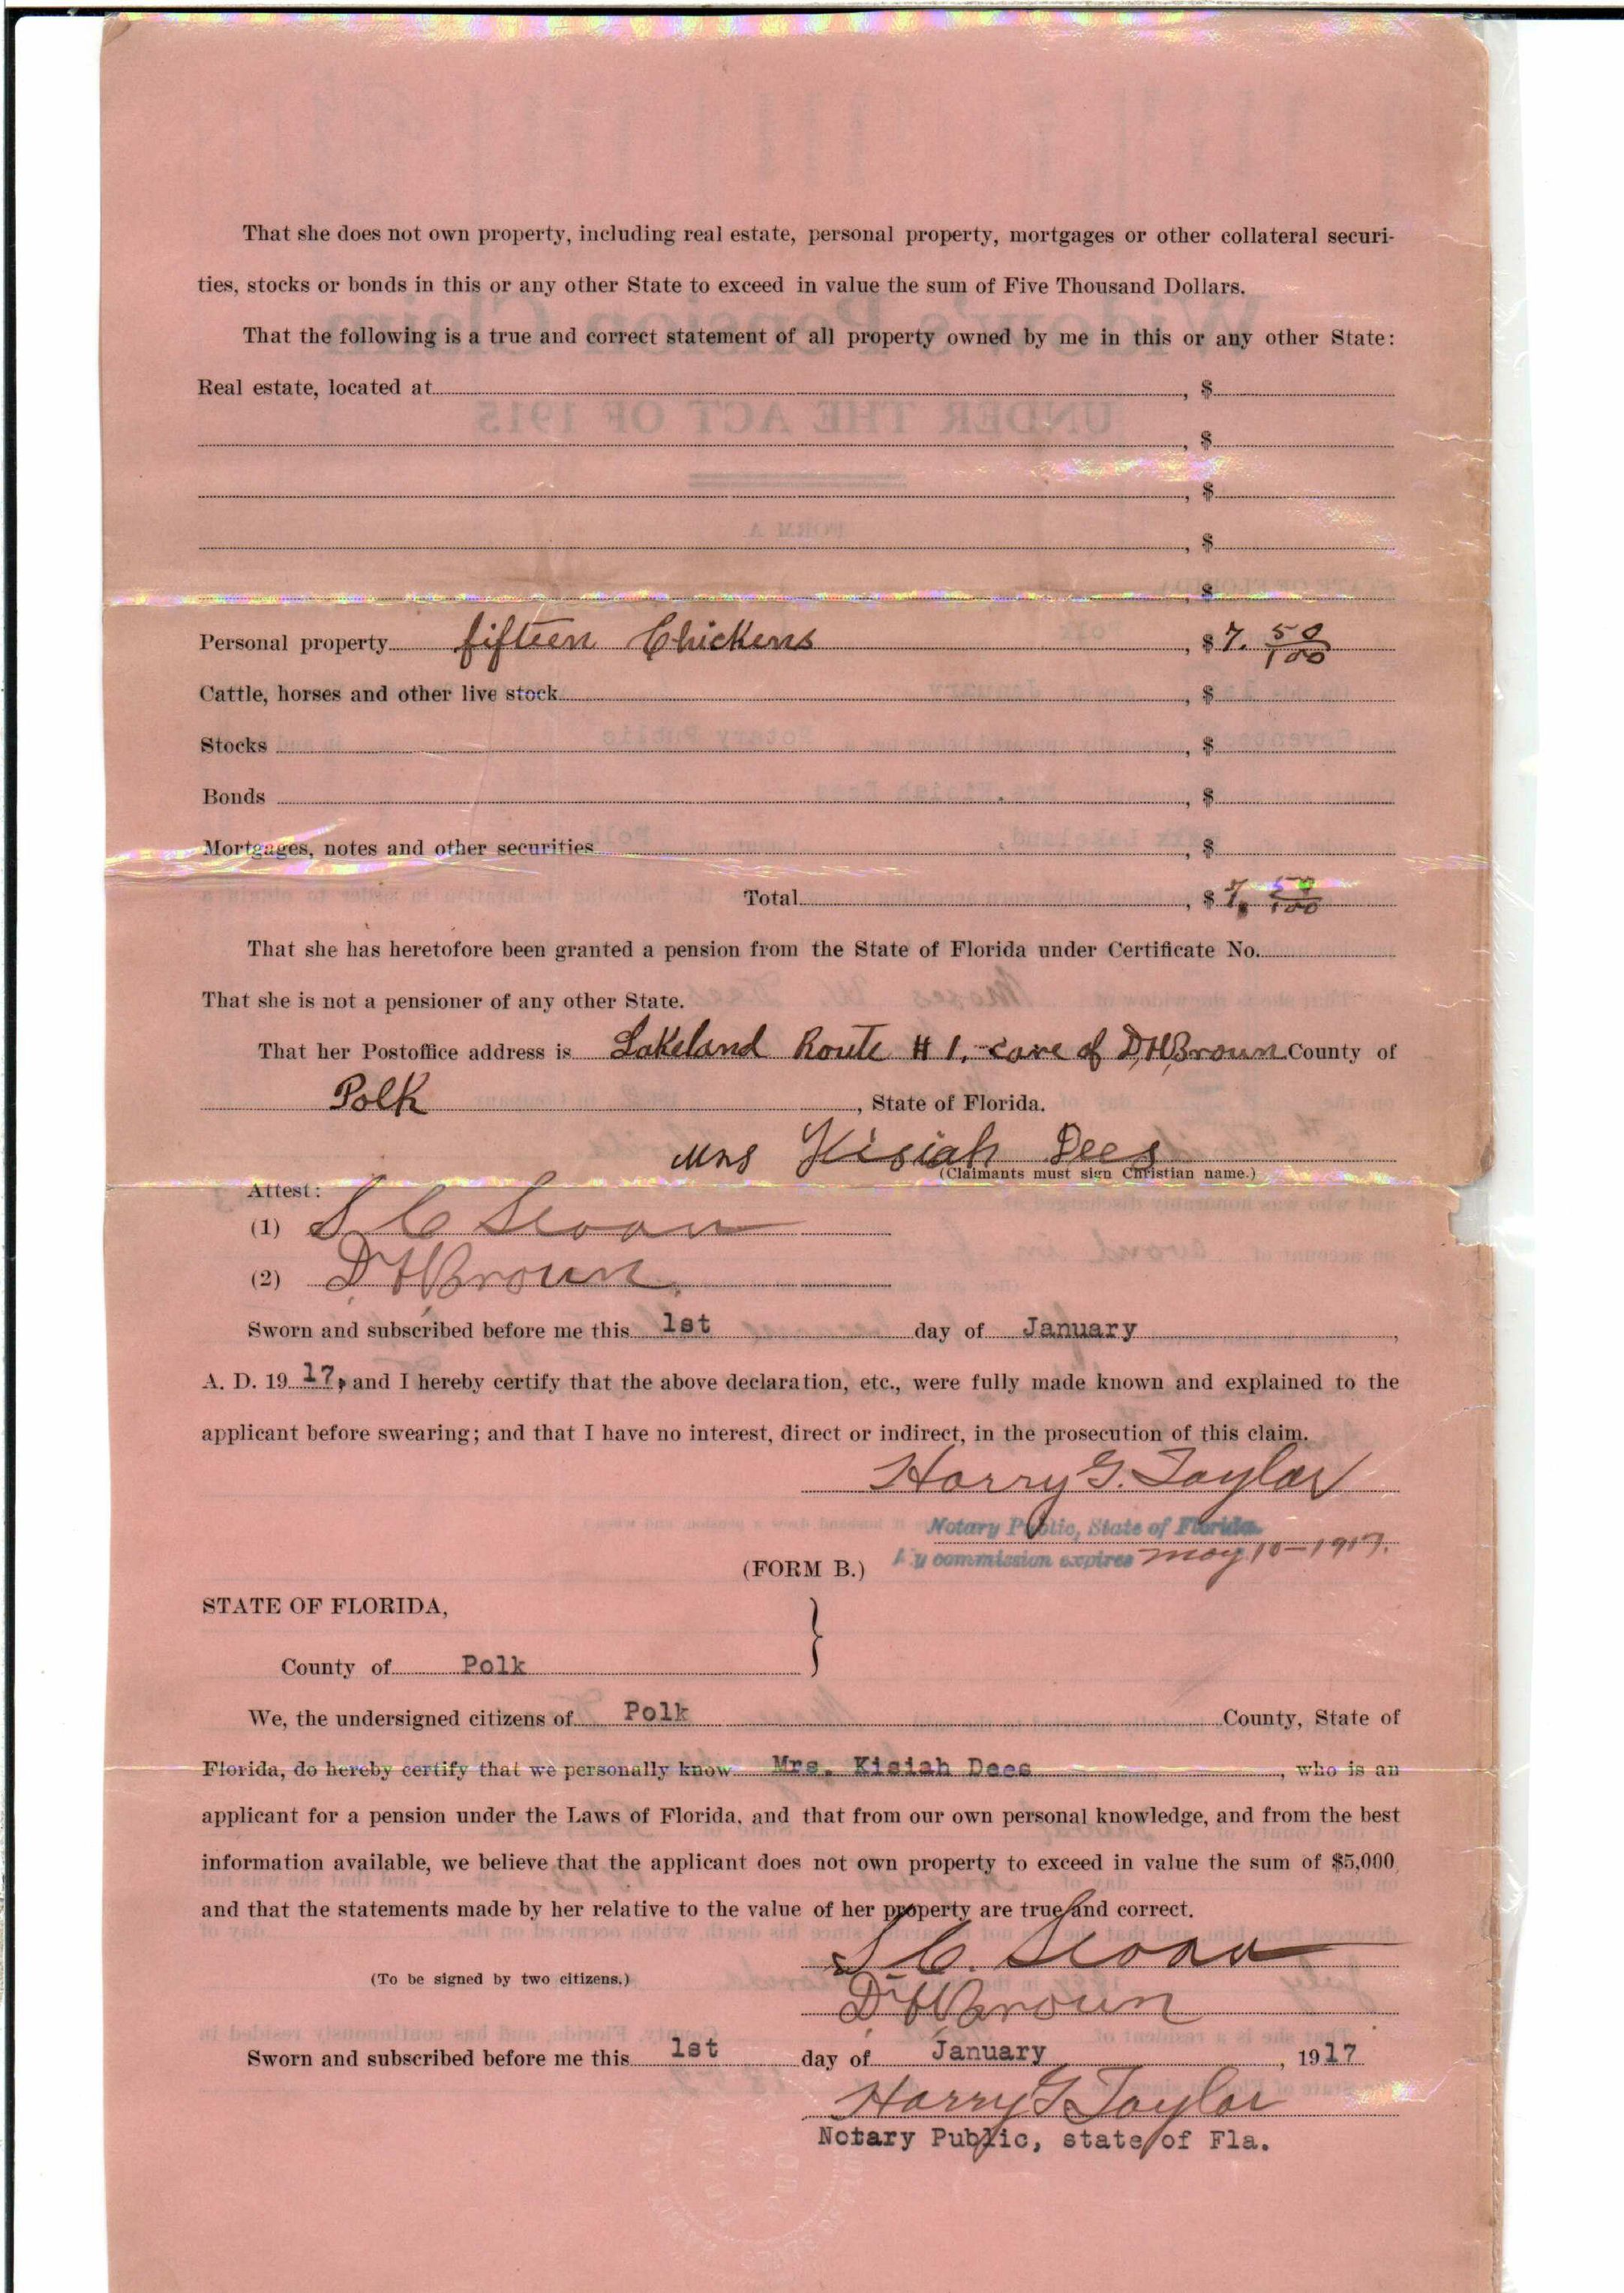 That she does not own property, including real estate, personal property, mortgages or other collateral securi-
ties, stocks or bonds in this or any other State to exceed in value the sum of Five Thousand Dollars.
That the following is a true and correct statement of all property owned by me in this or any other State:
Real estate, located at , $
, $
, $
, $
$
Personal property fifteen Chickens , $ 7. 50/100
Cattle, horses and other live stock , $
Stocks , $
Bonds , $
Mortgages, notes and other securities , $
Total , $ 7. 50/100
That she has heretofore been granted a pension from the State of Florida under Certificate No.
That she is not a pensioner of any other State.
That her Postoffice address is Lakeland Route # 1. care of D.H.Broun County of
Polk , State of Florida.
Mrs Kisiah Dees
(Claimants must sign Christian name.)
Attest:
(1) S C Sloan
(2) D H Broun.
Sworn and subscribed before me this 1st day of January ,
A. D. 19 17, and I hereby certify that the above declaration, etc., were fully made known and explained to the
applicant before swearing; and that I have no interest, direct or indirect, in the prosecution of this claim.
Harry G. Taylor
Notary Public, State of Florida.
My commission expires may 10-1917.
(FORM B.)
STATE OF FLORIDA,
County of Polk
We, the undersigned citizens of Polk County, State of
Florida, do hereby certify that we personally know Mrs. Kisiah Dees , who is an
applicant for a pension under the Laws of Florida, and that from our own personal knowledge, and from the best
information available, we believe that the applicant does not own property to exceed in value the sum of $5,000
and that the statements made by her relative to the value of her property are true and correct.
S C. Sloan
(To be signed by two citizens.)
D H Broun
Sworn and subscribed before me this 1st day of January , 1917
Harry G Taylor
Notary Public, state of Fla.